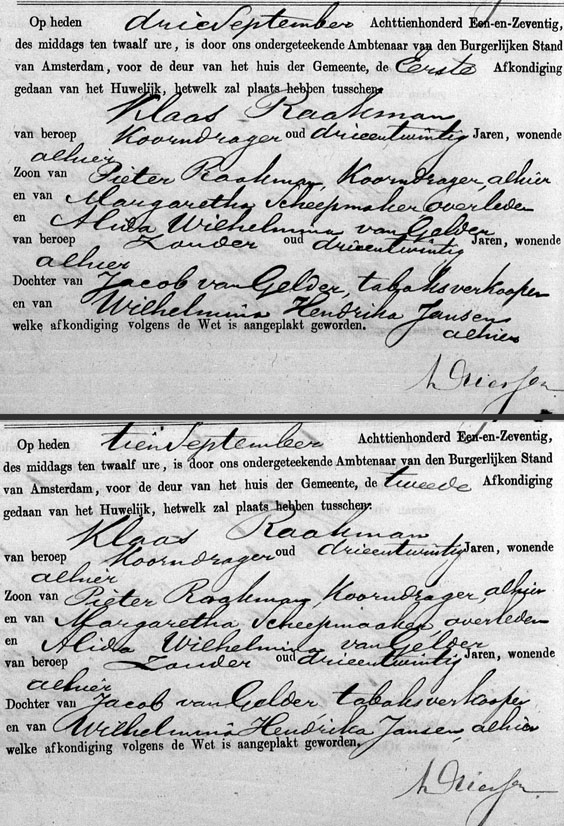 Op heden drie September Achttienhonderd Een-en-Zeventig,
des middags ten twaalf ure, is door ons ondergeteekende Ambtenaar van den Burgerlijken Stand
van Amsterdam, voor de deur van het huis der Gemeente, de Eerste Afkondiging
gedaan van het Huwelijk, hetwelk zal plaats hebben tusschen:
Klaas Raakman
van beroep Koorndrager oud drieentwintig Jaren, wonende
alhier
Zoon van Pieter Raakman, Koorndrager, alhier
en van Margaretha Scheepmaker overleden
en Alida Wilhelmina van Gelder
van beroep Zonder oud drieentwintig Jaren, wonende
alhier
Dochter van Jacob van Gelder, tabaksverkooper
en van Wilhelmina Hendrika Jansen
welke afkondiging volgens de Wet is aangeplakt geworden. alhier
Op heden tien September Achttienhonderd Een-en-Zeventig,
des middags ten twaalf ure, is door ons ondergeteekende Ambtenaar van den Burgerlijken Stand
van Amsterdam, voor de deur van het huis der Gemeente, de tweede Afkondiging
gedaan van het Huwelijk, hetwelk zal plaats hebben tusschen:
Klaas Raakman
van beroep Koorndrager oud drieentwintig Jaren, wonende
alhier
Zoon van Pieter Raakman, Koorndrager, alhier
en van Margaretha Scheepmaker, overleden
en Alida Wilhelmina van Gelder
van beroep Zonder oud drieentwintig Jaren, wonende
alhier
Dochter van Jacob van Gelder tabaksverkooper
en van Wilhelmina Hendrika Jansen, alhier
welke afkondiging volgens de Wet is aangeplakt geworden.